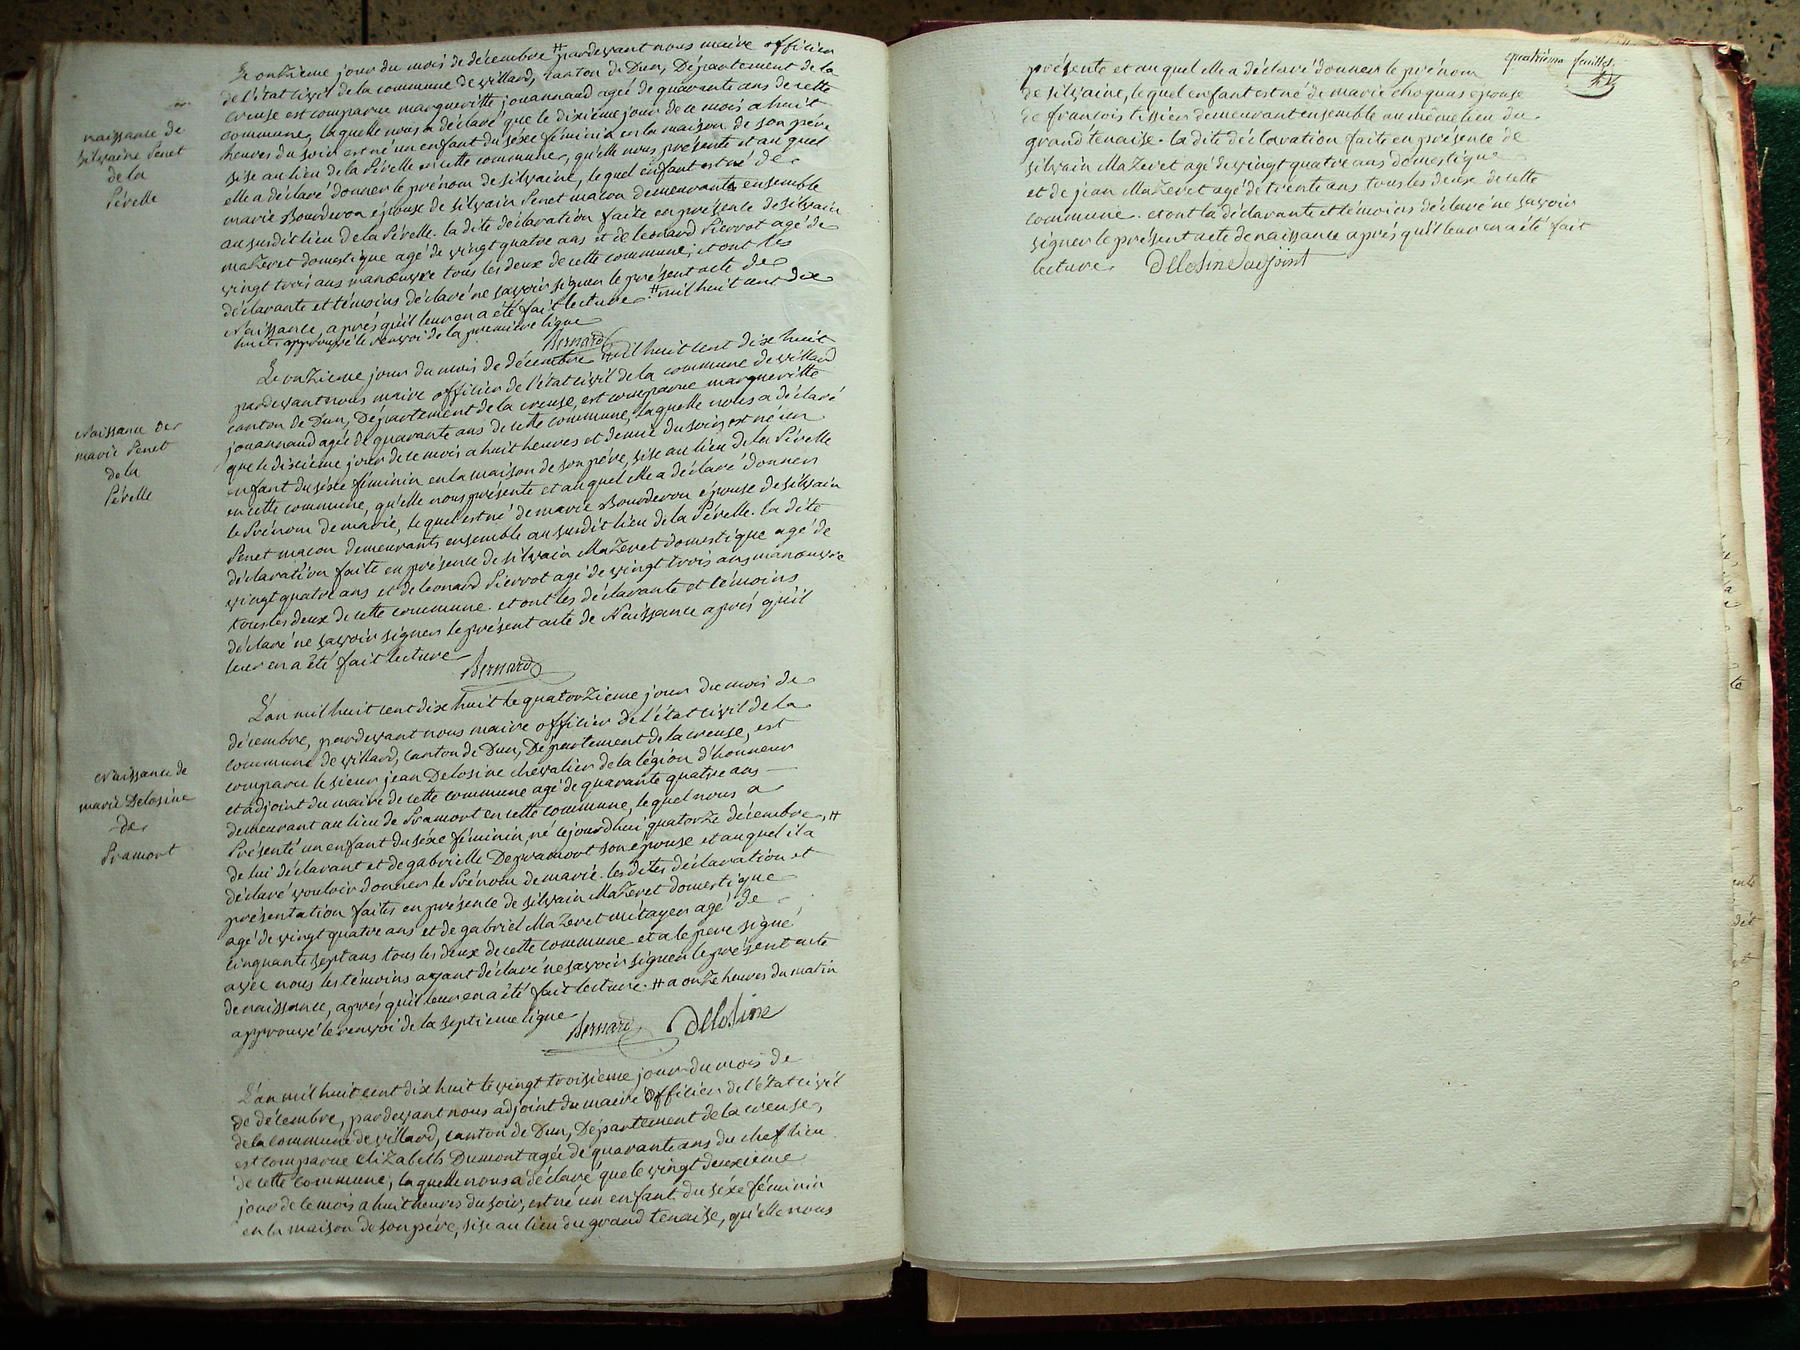 naissance de
silvaine Penet
de la
Pérelle
Le onzieme jour du mois de décembre # pardevant nous maire officier
de l'état civil de la commune de villard, canton de Dun, Département de la
creuse est comparue margueritte jouannaud agée de quarante ans de cette
commune, laquelle nous a déclaré que le dixième jour de ce mois a huit
heures du soir est né un enfant du séxe féminin en la maison de son père
sise au lieu de la Pérelle en cette commune, qu'elle nous présente et au quel
elle a déclaré donner le prénom de silvaine, lequel enfant est né de
marie Bourderon épouse de silvain Penet macon demeurants ensemble
au susdit lieu de la Pérelle. la dite déclaration faite en présence de silvain
maZeret domestique agé de vingt quatre ans et de leonard Pierrot agé de
vingt trois ans manoeuvre tous les deux de cette commune; et ont les
déclarante et témoins déclaré ne savoir signer le présent acte de
Naissance, après qu'il leur en a été fait lecture. # mil huit cent dix
huit approuvé le renvoi de la première ligne
Bernard
Naissance de
marie Penet
de la
Pérelle
Le onzieme jour du mois de décembre mil huit cent dix huit
pardevant nous maire officier de l'état civil de la commune de villard
canton de Dun, Département de la creuse, est comparue margueritte
jouannaud agée de quarante ans de cette commune, laquelle nous a déclaré
que le dixieme jour de ce mois a huit heures et demie du soir est né un
enfant du séxe féminin en la maison de son père, sise au lieu de la Pérelle
en cette commune, qu'elle nous présente et au quel elle a déclaré donner
le Prénom de marie, lequel est né de marie Bourderon épouse de silvain
Penet macon demeurants ensemble au susdit lieu de la Pérelle. la dite
déclaration faite en présence de silvain MaZeret domestique agé de
vingt quatre ans et de leonard Pierrot agé de vingt trois ans manoeuvre
tous les deux de cette commune. et ont les déclarante et témoins
déclaré ne savoir signer le présent acte de Naissance après qu'il
leur en a été fait lecture
Bernard
Naissance de
marie Delosine
de
Pramort
L'an mil huit cent dix huit le quatorZieme jour du mois de
décembre, pardevant nous maire officier de l'état civil de la
commune de villard, canton de Dun, Département de la creuse, est
comparu le sieur jean Delosine chevalier de la légion d'honneur
et adjoint du maire de cette commune agé de quarante quatre ans
demeurant au lieu de Pramort en cette commune, lequel nous a
Présenté un enfant du séxe féminin, né cejourd'hui quatorZe décembre, #
de lui déclarant et de gabrielle Depramort son épouse et au quel il a
déclaré vouloir donner le Prénom de marie. les dites déclaration et
présentation faites en présence de silvain MaZeret domestique
agé de vingt quatre ans et de gabriel MaZeret métayer agé de
cinquante sept ans tous les deux de cette commune et a le père signé
avec nous les témoins ayant déclaré ne savoir signer le présent acte
de naissance, après qu'il leur en a été fait lecture. # a onZe heures du matin
approuvé le renvoi de la septieme ligne
Bernard Delosine
L'an mil huit cent dix huit le vingt troisieme jour du mois de
de décembre, pardevant nous adjoint du maire officier de l'état civil
de la commune de villard, canton de Dun, Département de la creuse,
est comparue eliZabeth Dumont agée de quarante ans du chef lieu
de cette commune, laquelle nous a déclaré que le vingt deuxieme
jour de ce mois a huit heures du soir, est né un enfant du séxe féminin
en la maison de son père, sise au lieu du grand tenaise, qu'elle nous
quatrieme feuillet.
présente et au quel elle a déclaré donner le prénom
de silvaine, lequel enfant est né de marie choquas épouse
de francois tissier demeurant ensemble au même lieu du
grand tenaise. la dite déclaration faite en présence de
silvain MaZeret agé de vingt quatre ans domestique
et de jean MaZeret agé de trente ans tous les deux de cette
commune. et ont la déclarante et témoins déclaré ne savoir
signer le présent acte de naissance après qu'il leur en a été fait
lecture Delosine adjoint